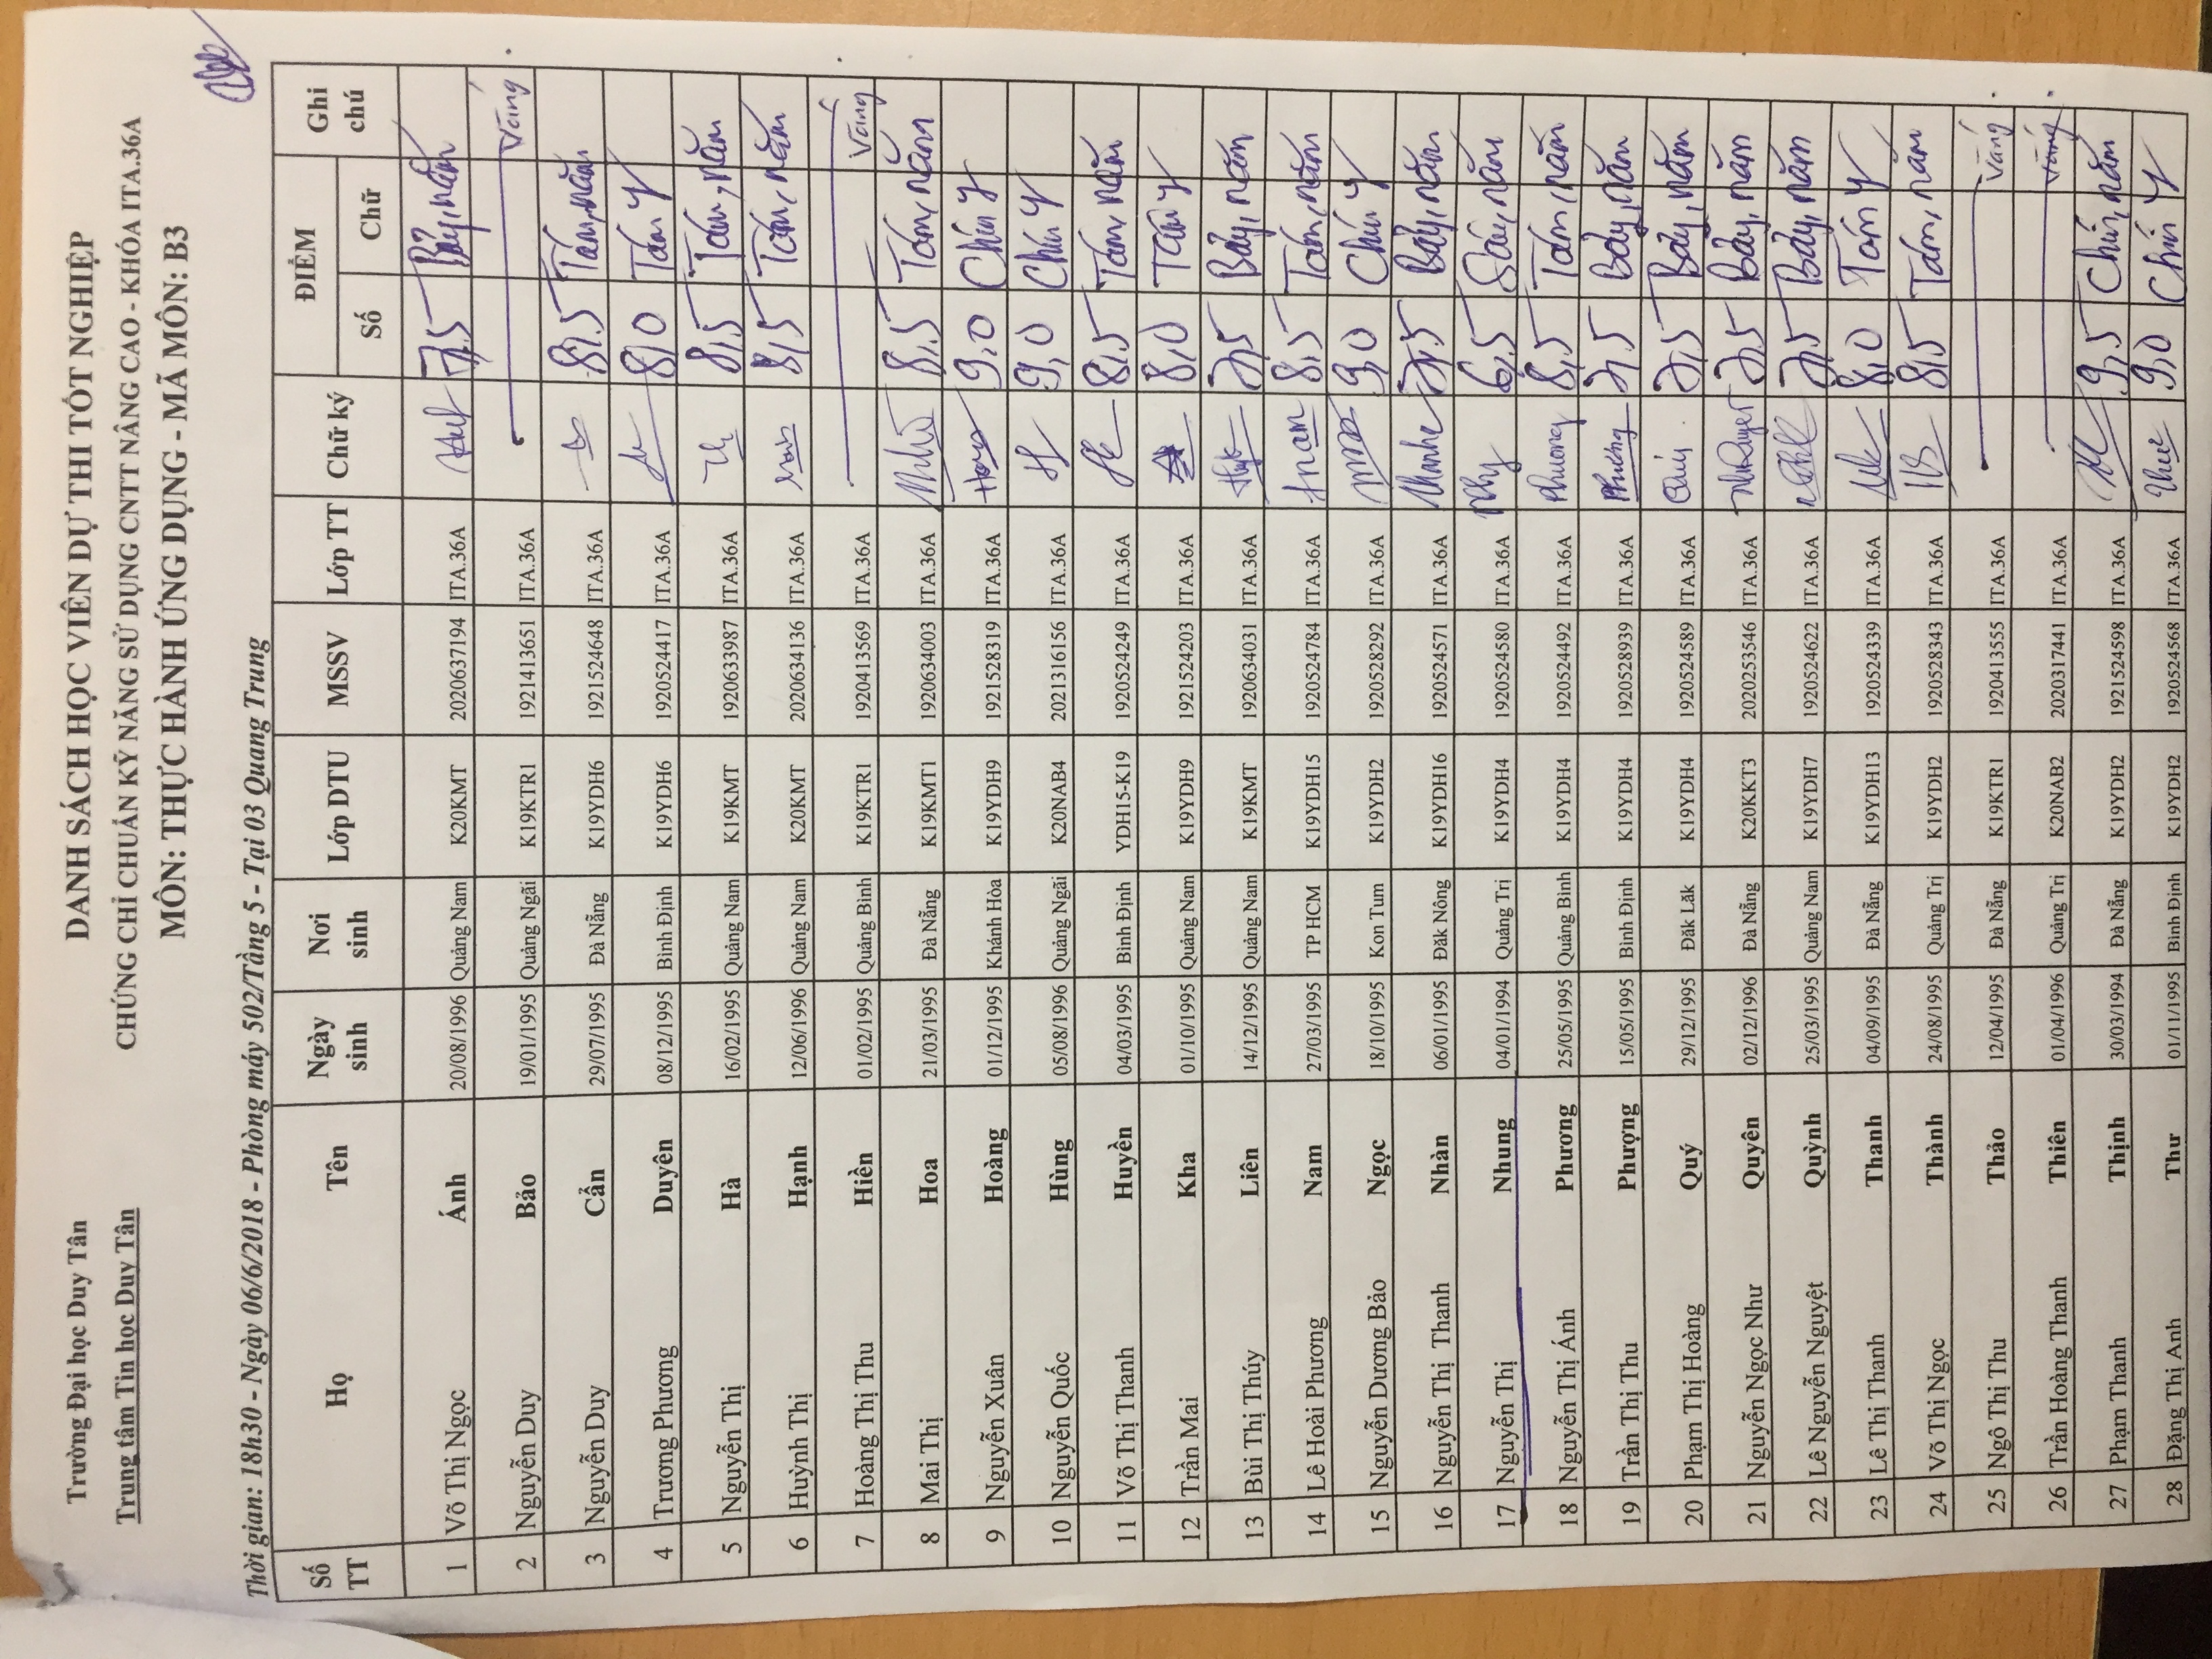 Trường Đại học Duy Tân
Trung tâm Tin học Duy Tân
DANH SÁCH HỌC VIÊN DỰ THI TỐT NGHIỆP
CHỨNG CHỈ CHUẨN KỸ NĂNG SỬ DỤNG CNTT NÂNG CAO - KHÓA ITA.36A
MÔN: THỰC HÀNH ỨNG DỤNG - MÃ MÔN: B3
Thời gian: 18h30 - Ngày 06/6/2018 - Phòng máy 502/Tầng 5 - Tại 03 Quang Trung
Số TT Họ Tên Ngày sinh Nơi sinh Lớp DTU MSSV Lớp TT Chữ ký ĐIỂM Số Chữ Ghi chú
1 Võ Thị Ngọc Ánh 20/08/1996 Quảng Nam K20KMT 2020637194 ITA.36A 7,5 Bảy, năm
2 Nguyễn Duy Bảo 19/01/1995 Quảng Ngãi K19KTR1 1921413651 ITA.36A Vắng
3 Nguyễn Duy Cẩn 29/07/1995 Đà Nẵng K19YDH6 1921524648 ITA.36A 8,5 Tám, năm
4 Trương Phương Duyên 08/12/1995 Bình Định K19YDH6 1920524417 ITA.36A 8,0 Tám y
5 Nguyễn Thị Hà 16/02/1995 Quảng Nam K19KMT 1920633987 ITA.36A 8,5 Tám, năm
6 Huỳnh Thị Hạnh 12/06/1996 Quảng Nam K20KMT 2020634136 ITA.36A 8,5 Tám, năm
7 Hoàng Thị Thu Hiền 01/02/1995 Quảng Bình K19KTR1 1920413569 ITA.36A Vắng
8 Mai Thị Hoa 21/03/1995 Đà Nẵng K19KMT1 1920634003 ITA.36A 8,5 Tám, năm
9 Nguyễn Xuân Hoàng 01/12/1995 Khánh Hòa K19YDH9 1921528319 ITA.36A 9,0 Chín y
10 Nguyễn Quốc Hùng 05/08/1996 Quảng Ngãi K20NAB4 2021316156 ITA.36A 9,0 Chín y
11 Võ Thị Thanh Huyền 04/03/1995 Bình Định YDH15-K19 1920524249 ITA.36A 8,5 Tám, năm
12 Trần Mai Kha 01/10/1995 Quảng Nam K19YDH9 1921524203 ITA.36A 8,0 Tám y
13 Bùi Thị Thúy Liên 14/12/1995 Quảng Nam K19KMT 1920634031 ITA.36A 7,5 Bảy, năm
14 Lê Hoài Phương Nam 27/03/1995 TP HCM K19YDH15 1920524784 ITA.36A nam 8,5 Tám, năm
15 Nguyễn Dương Bảo Ngọc 18/10/1995 Kon Tum K19YDH2 1920528292 ITA.36A 9,0 Chín y
16 Nguyễn Thị Thanh Nhàn 06/01/1995 Đăk Nông K19YDH16 1920524571 ITA.36A 7,5 Bảy, năm
17 Nguyễn Thị Nhung 04/01/1994 Quảng Trị K19YDH4 1920524580 ITA.36A 6,5 Sáu, năm
18 Nguyễn Thị Ánh Phương 25/05/1995 Quảng Bình K19YDH4 1920524492 ITA.36A Phương 8,5 Tám, năm
19 Trần Thị Thu Phượng 15/05/1995 Bình Định K19YDH4 1920528939 ITA.36A Phượng 7,5 Bảy, năm
20 Phạm Thị Hoàng Quý 29/12/1995 Đăk Lăk K19YDH4 1920524589 ITA.36A Quý 7,5 Bảy, năm
21 Nguyễn Ngọc Như Quyên 02/12/1996 Đà Nẵng K20KKT3 2020253546 ITA.36A 7,5 Bảy, năm
22 Lê Nguyễn Nguyệt Quỳnh 25/03/1995 Quảng Nam K19YDH7 1920524622 ITA.36A 7,5 Bảy, năm
23 Lê Thị Thanh Thanh 04/09/1995 Đà Nẵng K19YDH13 1920524339 ITA.36A 8,0 Tám y
24 Võ Thị Ngọc Thành 24/08/1995 Quảng Trị K19YDH2 1920528343 ITA.36A 8,5 Tám, năm
25 Ngô Thị Thu Thảo 12/04/1995 Đà Nẵng K19KTR1 1920413555 ITA.36A Vắng
26 Trần Hoàng Thanh Thiên 01/04/1996 Quảng Trị K20NAB2 2020317441 ITA.36A Vắng
27 Phạm Thanh Thịnh 30/03/1994 Đà Nẵng K19YDH2 1921524598 ITA.36A 9,5 Chín, năm
28 Đặng Thị Anh Thu 01/11/1995 Bình Định K19YDH2 1920524568 ITA.36A 9,0 Chín y